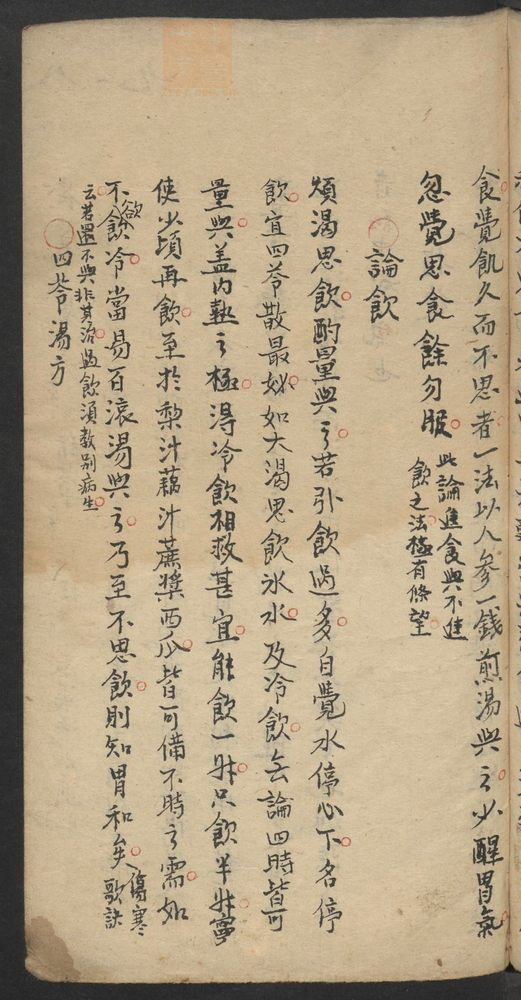 食覺飢久而不思者一法以人參一錢煎湯與之少醒胃氣
忽覺思食餘勿服
此論進食與不進
飲之法極有條望
論飲
煩渴思飲酌量與之若引飲過多自覺水停心下名停
飲宜四苓散最妙如大渴思飲氷水及冷飲无論四時皆可
量與盖内熱之極得冷飲相救甚宜能飲一升只飲半升寧
使少頃再飲至於梨汁藕汁蔗漿西瓜皆可備不時之需如
不欲飲冷當易百滾湯與之乃至不思飲則知胃和矣
傷寒
歌訣
云若還不與非其治過飲須教别病生
四苓湯方